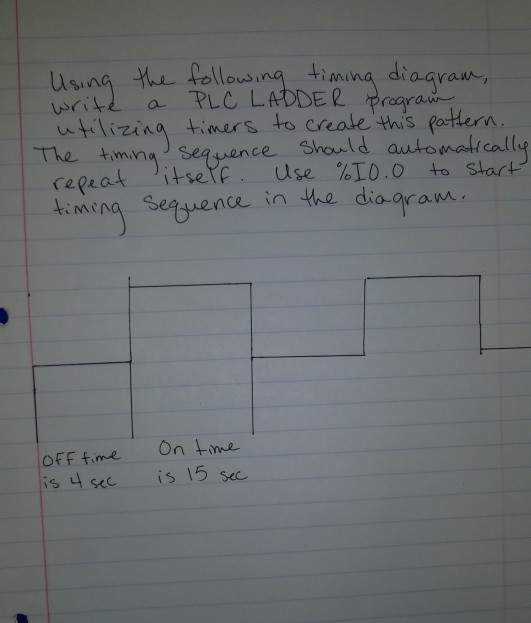 Using the following timing diagram,
write a PLC LADDER program
utilizing timers to create this pattern.
The timing sequence should automatically
repeat itself. Use %I0.0 to start
timing sequence in the diagram.
OFF time On time
is 4 sec is 15 sec